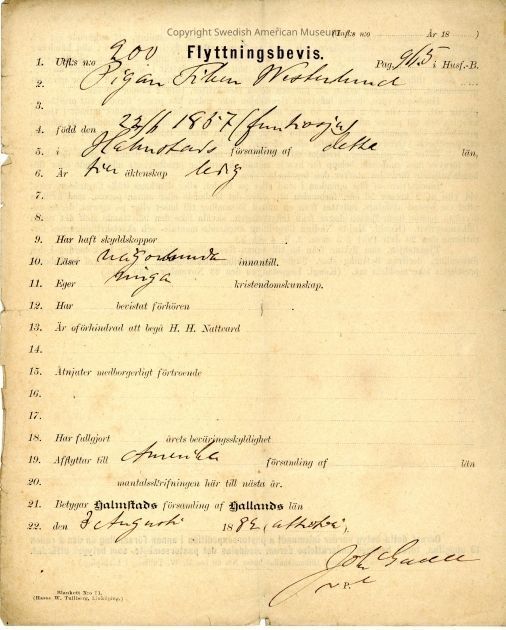 Copyright Swedish American Museum
(Utfls n:o År 18 )
Flyttningsbevis.
1. Utfls n:o 200 Pag. 915 i Husf.-B.
2. Pigan Ellen Westerlund
3.
4. född den 22/6 1857 (femtiosju)
5. i Halmstads församling af detta län,
6. Är till äktenskap ledig
7.
8.
9. Har haft skyddskoppor
10. Läser någorlunda innantill.
11. Eger ringa kristendomskunskap.
12. Har bevistat förhören
13. Är oförhindrad att begå H. H. Nattvard
14.
15. Åtnjuter medborgerligt förtroende
16.
17.
18. Har fullgjort årets beväringsskyldighet
19. Afflyttar till Amerika församling af län
20. mantalsskrifningen här till nästa år.
21. Betygar Halmstads församling af Hallands län
22. den 3 Augusti 1882 (åttiotvå),
Joh
v. p.
Blankett N:o 71,
(Hanns W. Tullberg, Linköping.)